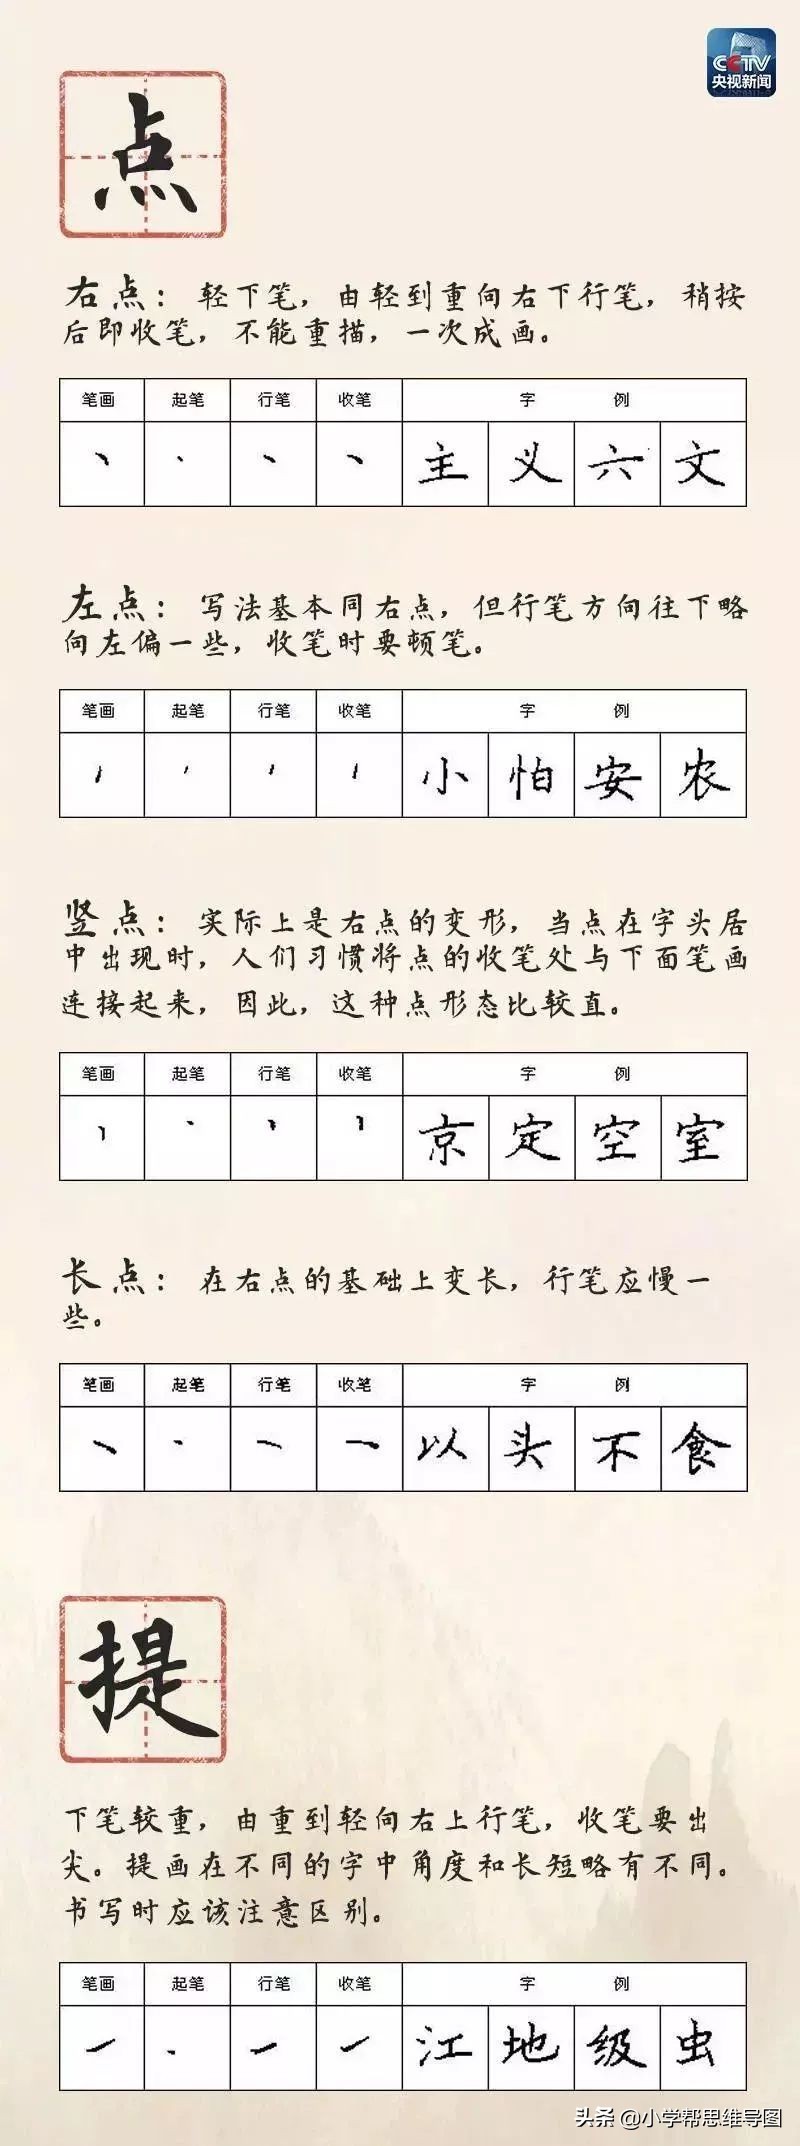 CCTV
央视新闻
点
右点：轻下笔，由轻到重向右下行笔，稍按
后即收笔，不能重描，一次成画。
笔画 起笔 行笔 收笔 字 例
丶 主 义 六 文
左点：写法基本同右点，但行笔方向往下略
向左偏一些，收笔时要顿笔。
笔画 起笔 行笔 收笔 字 例
小 怕 安 农
竖点：实际上是右点的变形，当点在字头居
中出现时，人们习惯将点的收笔处与下面笔画
连接起来，因此，这种点形态比较直。
笔画 起笔 行笔 收笔 字 例
京 定 空 室
长点：在右点的基础上变长，行笔应慢一
些。
笔画 起笔 行笔 收笔 字 例
以 头 不 食
提
下笔较重，由重到轻向右上行笔，收笔要出
尖。提画在不同的字中角度和长短略有不同。
书写时应该注意区别。
笔画 起笔 行笔 收笔 字 例
江 地 级 虫
头条 @小学帮思维导图